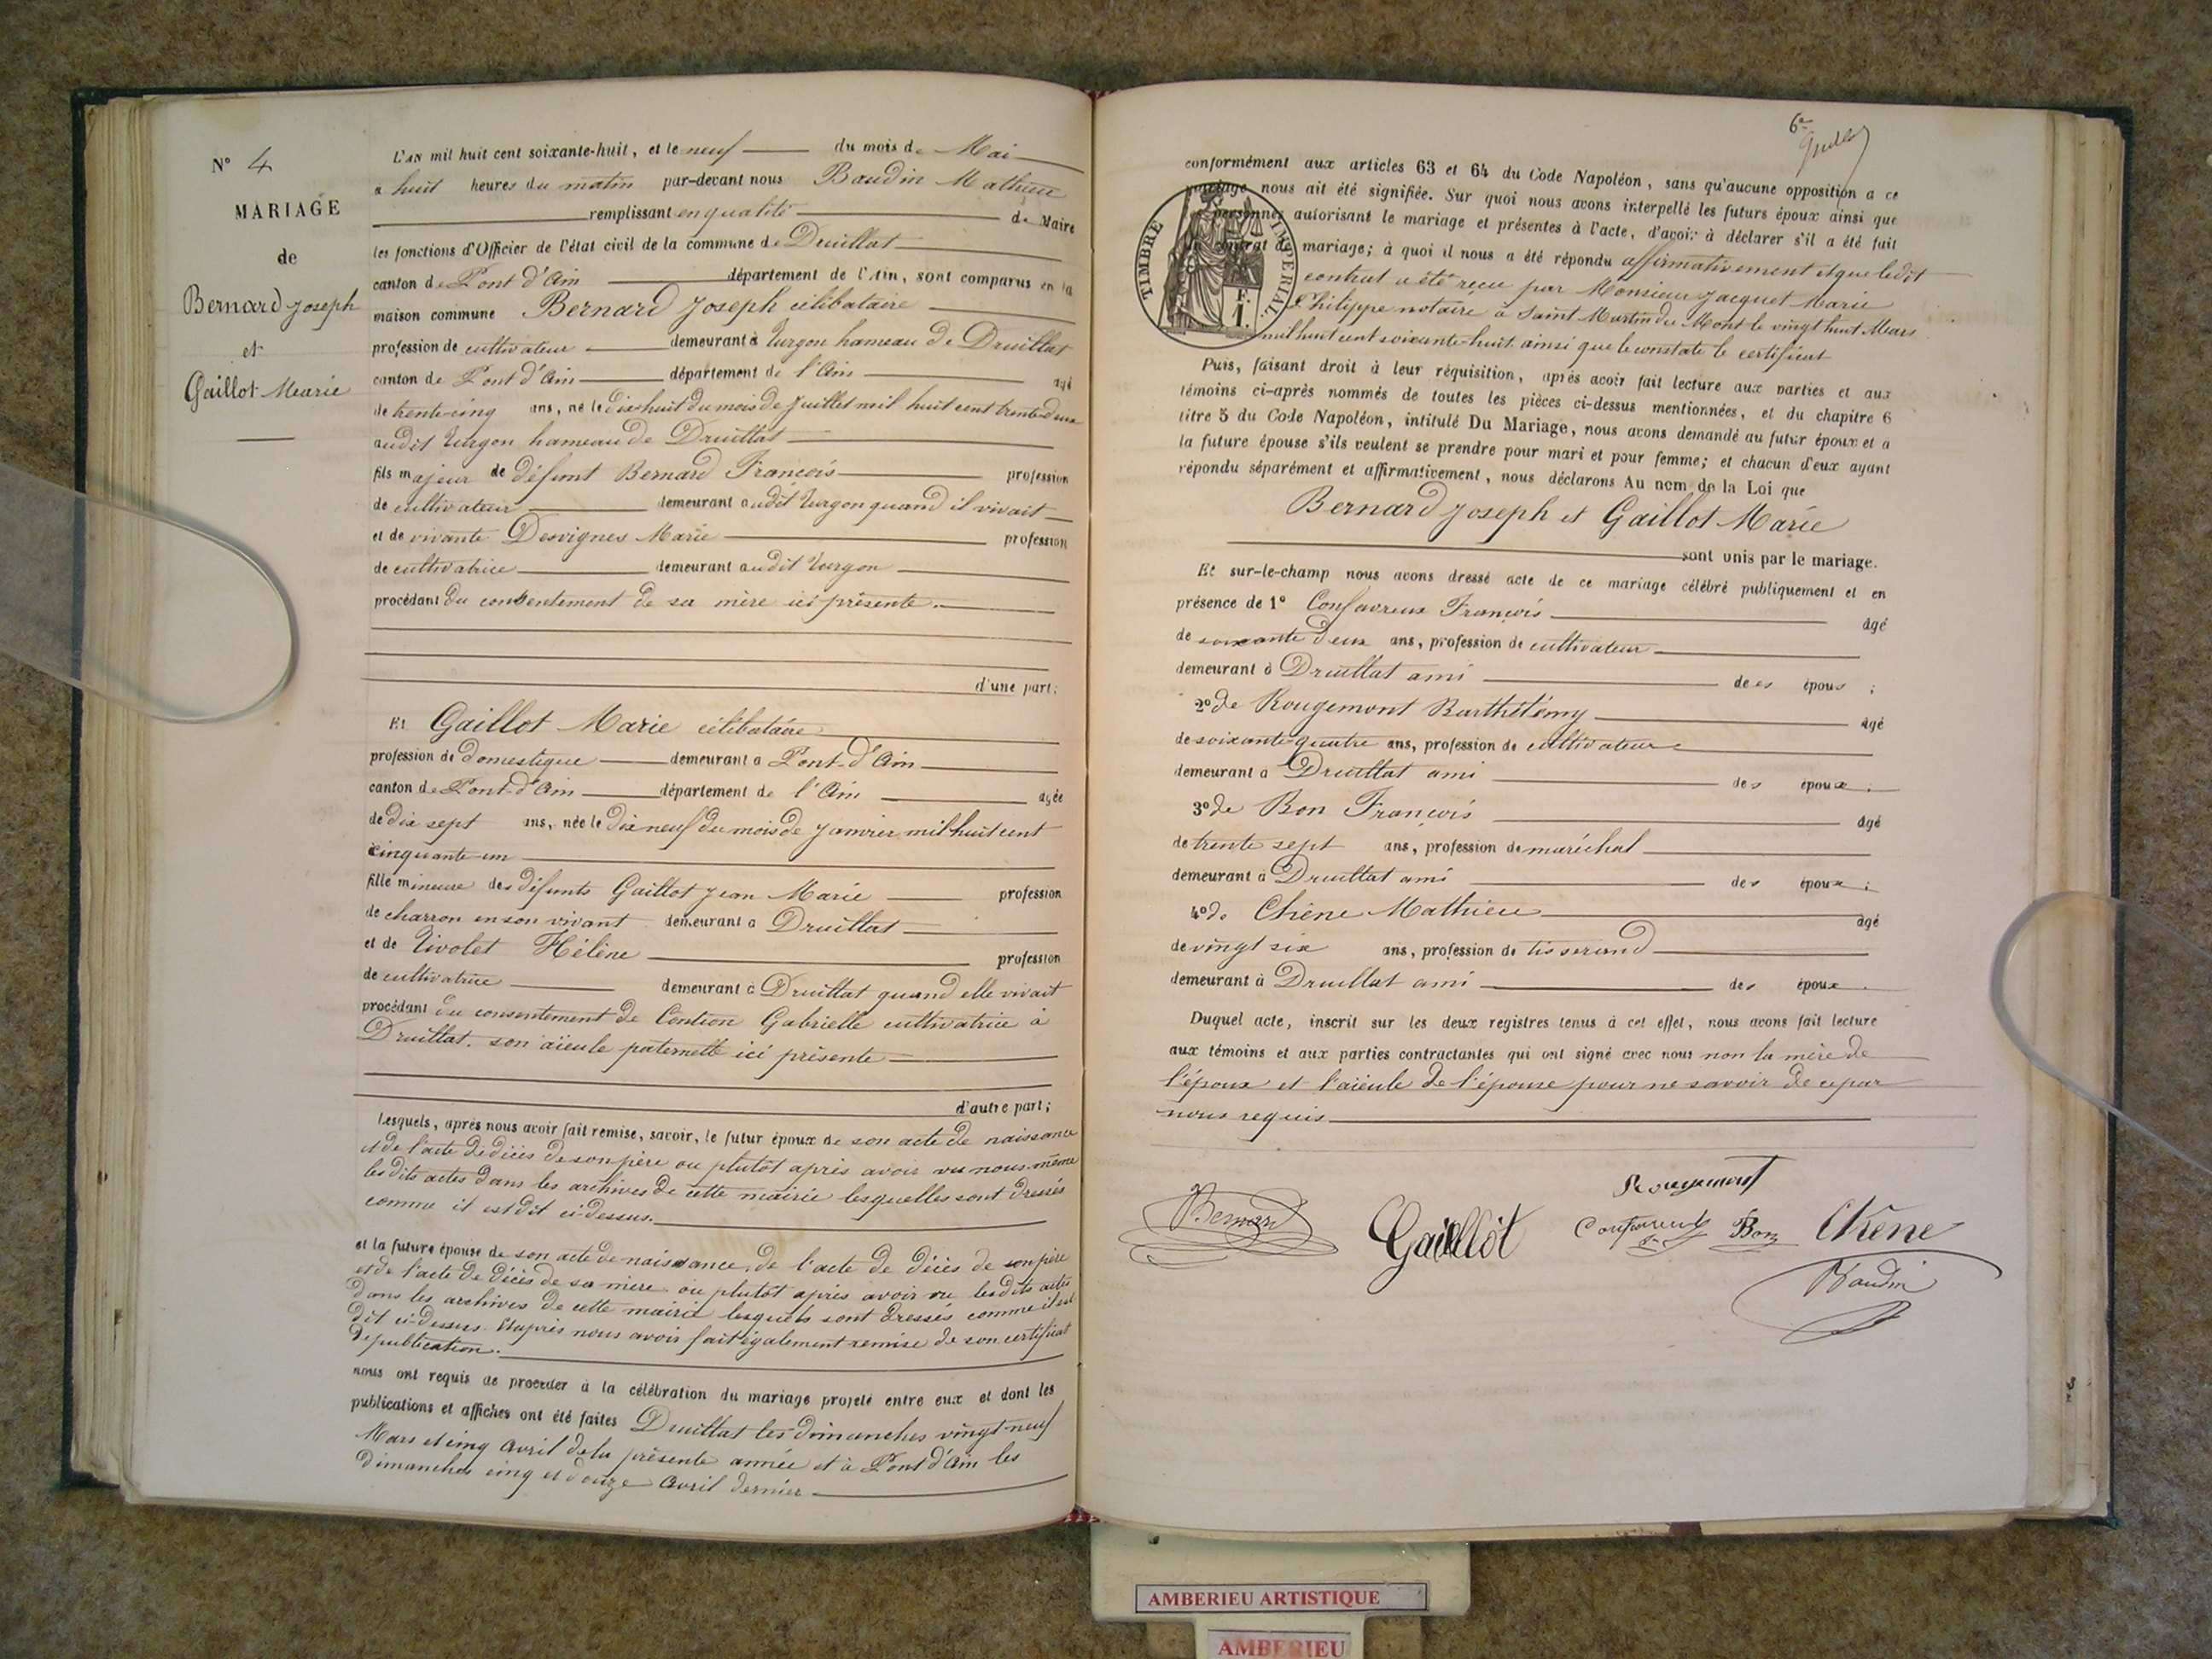 N° 4
MARIAGE
de
Bernard Joseph
et
Gaillot Marie
L'AN mil huit cent soixante-huit, et le neuf du mois de Mai
à huit heures du matin par-devant nous Baudin Mathieu
remplissant en qualité de Maire
les fonctions d'Officier de l'état civil de la commune de Druillat
canton de Pont d'Ain département de l'Ain, sont comparus en la
maison commune Bernard Joseph célibataire
profession de cultivateur demeurant à Turgon hameau de Druillat
canton de Pont d'Ain département de l'Ain agé
de trente-cinq ans, né le dix-huit du mois de Juillet mil huit cent trente-deux
audit Turgon hameau de Druillat
fils majeur de défunt Bernard François profession
de cultivateur demeurant audit Turgon quand il vivait
et de vivante Desvignes Marie profession
de cultivatrice demeurant audit Turgon
procédant du consentement de sa mère ici présente.
d'une part;
Et Gaillot Marie célibataire
profession de domestique demeurant à Pont-d'Ain
canton de Pont-d'Ain département de l'Ain agée
de dix sept ans, née le dix neuf du mois de Janvier mil huit cent
cinquante un
fille mineure des défunts Gaillot Jean Marie profession
de charron en son vivant demeurant à Druillat
et de Tivolet Hélène profession
de cultivatrice demeurant à Druillat quand elle vivait
procédant du consentement de Contion Gabrielle cultivatrice à
Druillat. son aïeule paternelle ici présente
d'autre part;
Lesquels, après nous avoir fait remise, savoir, le futur époux de son acte de naissance
et de l'acte de décès de son père ou plutôt après avoir vu nous-même
les dits actes dans les archives de cette mairie lesquelles sont dressés
comme il est dit ci-dessus.
et la future épouse de son acte de naissance, de l'acte de décès de son père
et de l'acte de décès de sa mère ou plutôt après avoir vu lesdits actes
dans les archives de cette mairie lesquels sont dressés comme il est
dit ci-dessus. Et après nous avoir fait également remise de son certificat
de publication.
nous ont requis de procéder à la célébration du mariage projeté entre eux et dont les
publications et affiches ont été faites Druillat les dimanches vingt-neuf
Mars et cinq Avril de la présente année et à Pont d'Ain les
dimanches cinq et douze Avril dernier
6e
conformément aux articles 63 et 64 du Code Napoléon, sans qu'aucune opposition a ce
mariage nous ait été signifiée. Sur quoi nous avons interpellé les futurs époux ainsi que
personnes autorisant le mariage et présentes à l'acte, d'avoir à déclarer s'il a été fait
contrat de mariage; à quoi il nous a été répondu affirmativement et que ledit
contrat a été reçu par Monsieur Jacquet Marie
Philippe notaire à Saint Martin du Mont le vingt huit Mars
mil huit cent soixante-huit. ainsi que le constate le certificat
TIMBRE IMPERIAL.
F.
1.
Puis, faisant droit à leur réquisition, après avoir fait lecture aux parties et aux
témoins ci-après nommés de toutes les pièces ci-dessus mentionnées, et du chapitre 6
titre 5 du Code Napoléon, intitulé Du Mariage, nous avons demandé au futur époux et a
la future épouse s'ils veulent se prendre pour mari et pour femme; et chacun d'eux ayant
répondu séparément et affirmativement, nous déclarons Au nom de la Loi que
Bernard Joseph et Gaillot Marie
sont unis par le mariage.
Et sur-le-champ nous avons dressé acte de ce mariage célébré publiquement et en
présence de 1° Confavreux François âgé
de soixante deux ans, profession de cultivateur
demeurant à Druillat ami des époux ;
2° de Rougemont Barthélémy âgé
de soixante-quatre ans, profession de cultivateur
demeurant à Druillat ami des époux.
3° de Bon François âgé
de trente sept ans, profession de maréchal
demeurant à Druillat ami des époux ;
4° de Chêne Mathieu âgé
de vingt six ans, profession de tisserand
demeurant à Druillat ami des époux.
Duquel acte, inscrit sur les deux registres tenus à cet effet, nous avons fait lecture
aux témoins et aux parties contractantes qui ont signé avec nous non la mère de
l'époux et l'aïeule de l'épouse pour ne savoir de ce par
nous requis
Rougemont
Bernard Gaillot Confavreux Bon Chêne
Baudin
AMBERIEU ARTISTIQUE
AMBERIEU